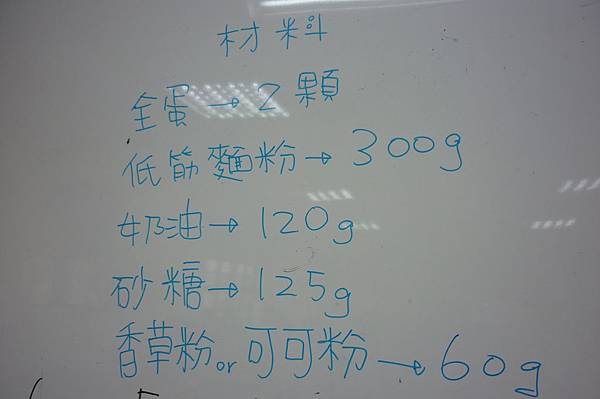 材料
全蛋→2顆
低筋麵粉→300g
奶油→120g
砂糖→125g
香草粉or可可粉→60g